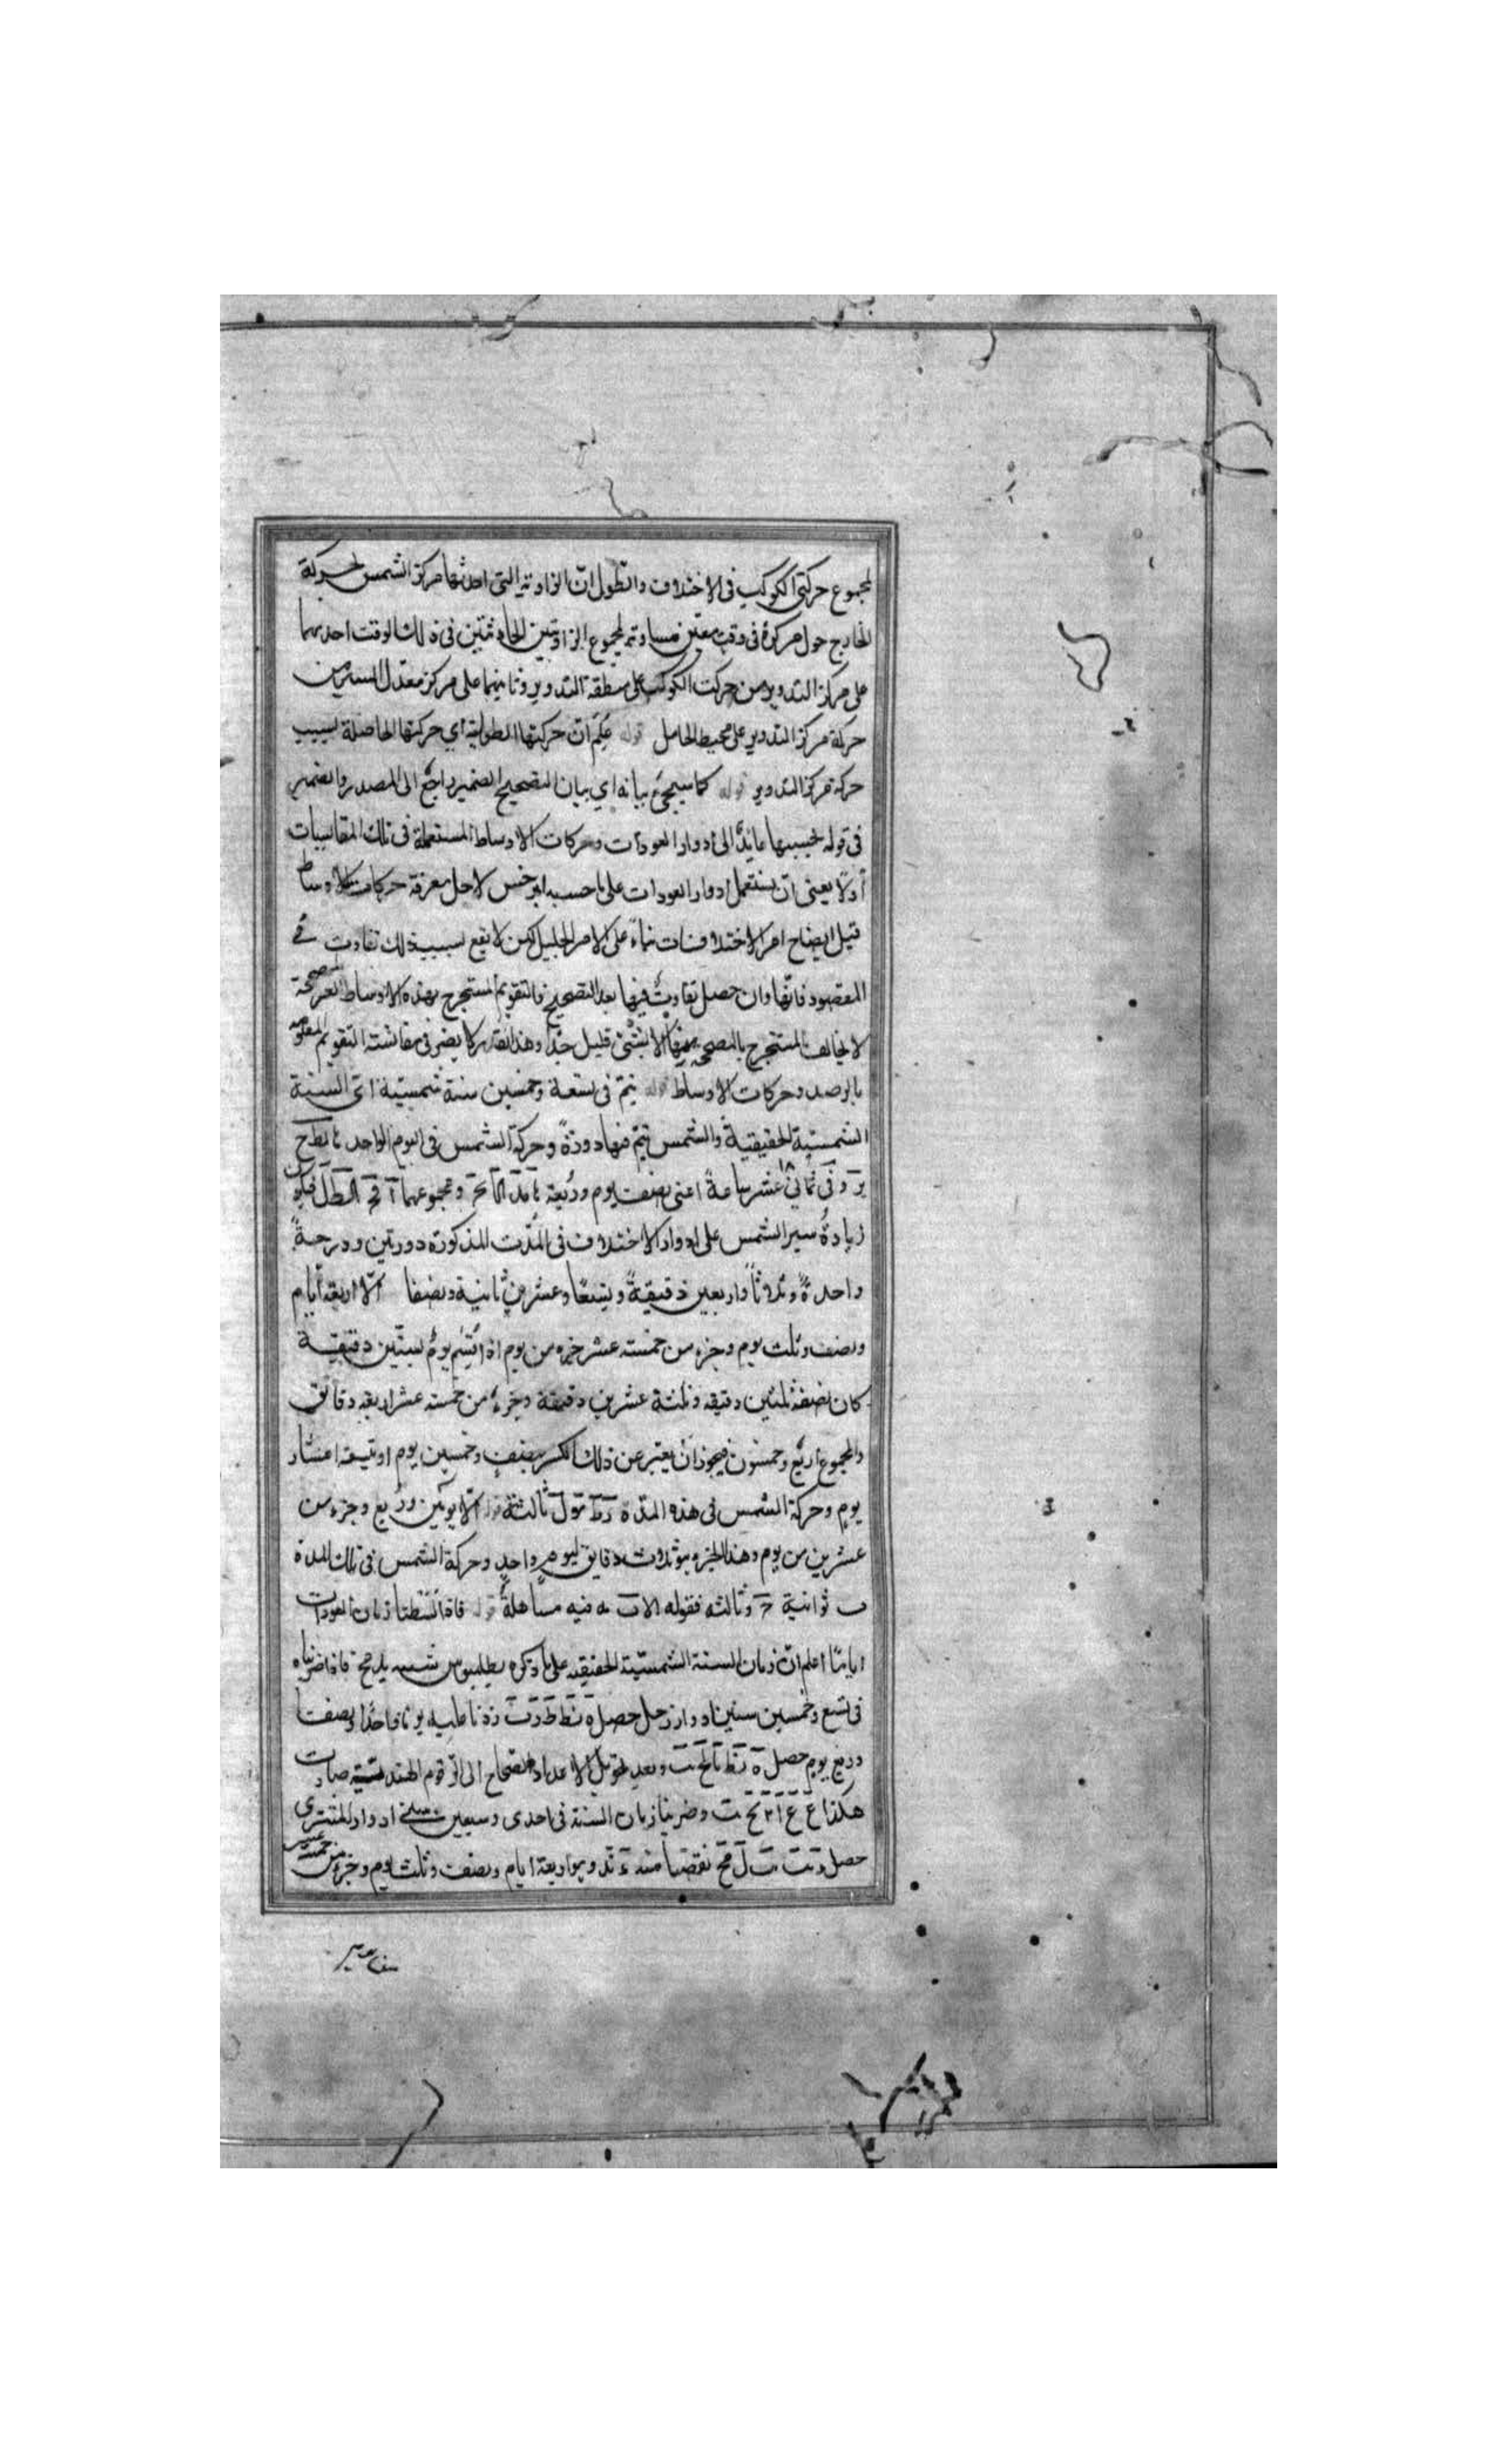 لمجموع حركتى الكوكب فى الاختلاف والطول ان الزاوية التى احدثها مركز الشمس بحركة
الخارج حول مركزه فى وقت معين مساوية لمجموع الزاويتين الحادثتين فى ذلك الوقت احديهما
على مركز التدوير من حركت الكوكب على منطقة التدوير وثانيهما على مركز معدل المسير من
حركة مركز التدوير على محيط الحامل قوله علم ان حركتها الطولية اي حركتها الحاصلة بسبب
حركة مركز التدوير قوله كما سيجئ بيانه اي بيان التصحيح الضمير راجع الى المصدر والضمير
فى قوله بحسبها عايد الى ادوار العودات وحركات الاوساط المستعملة فى تلك المقايسات
أولا يعنى ان يستعمل ادوار العودات على ما حسبه ابرخس لاجل معرفة حركات الاوساط
قبل ايضاح امر الاختلافات بناء على الامر الجليل لكن لا يقع بسبب ذلك تفاوت فى
المقصود فانها وان حصل تفاوت فيها بعد التصحيح فالتقويم المستخرج بهذه الاوساط الغير المصححة
لا يخالف المستخرج بالمصححة منها الا بشئ قليل جدا وهذا القدر لا يضر فى مقايسته التقويم المعلوم
بالرصد وحركات الاوساط قوله يتم فى تسعة وخمسين سنة شمسية اى السنة
الشمسية الحقيقية والشمس يتم فيها دورة وحركة الشمس فى اليوم الواحد
وفى ثمانى عشر ساعة اعنى نصف يوم وربعه ومجموعهما
زيادة سير الشمس على ادوار الاختلاف فى المدت المذكورة دورتين ودرجة
واحدة وثلاثا واربعين دقيقة وتسعا وعشرين ثانية ونصفا الا اربعة ايام
ونصف وثلث يوم وجزء من خمسته عشر جزء من يوم اذا قسم يوم بستين دقيقة
كان نصفه ثلثين دقيقه وثلثة عشرين دقيقة وجزء من خمسته عشر اربعه دقائق
والمجموع اربع وخمسون فيجوز ان يعبر عن ذلك الكسر بنصف وخمسين يوم او تسعة اعشار
يوم وحركة الشمس فى هذه المدة ثالثة قوله الا يومين وربع وجزء من
عشرين من يوم وهذا الجزء هو ثلاث دقايق ليوم واحد وحركة الشمس فى تلك المدة
ثوانية وثالثه فقوله فيه مساهلة قوله فاذا بسطنا زمان العودات
اياما اعلم ان زمان السنة الشمسية الحقيقيه على ما ذكره بطلميوس فاذا ضربناه
فى تسع وخمسين سنين ادوار زحل حصل زدنا عليه يوما واحدا ونصفا
وربع يوم حصل وبعد تحويل الاعداد الصحاح الى الرقوم الهندسية صارت
هكذا وضربنا زمان السنة فى احدى وسبعين ادوار المشترى
حصل نقصنا منه وهو اربعة ايام ونصف وثلث يوم وجزء من خمسة عشر